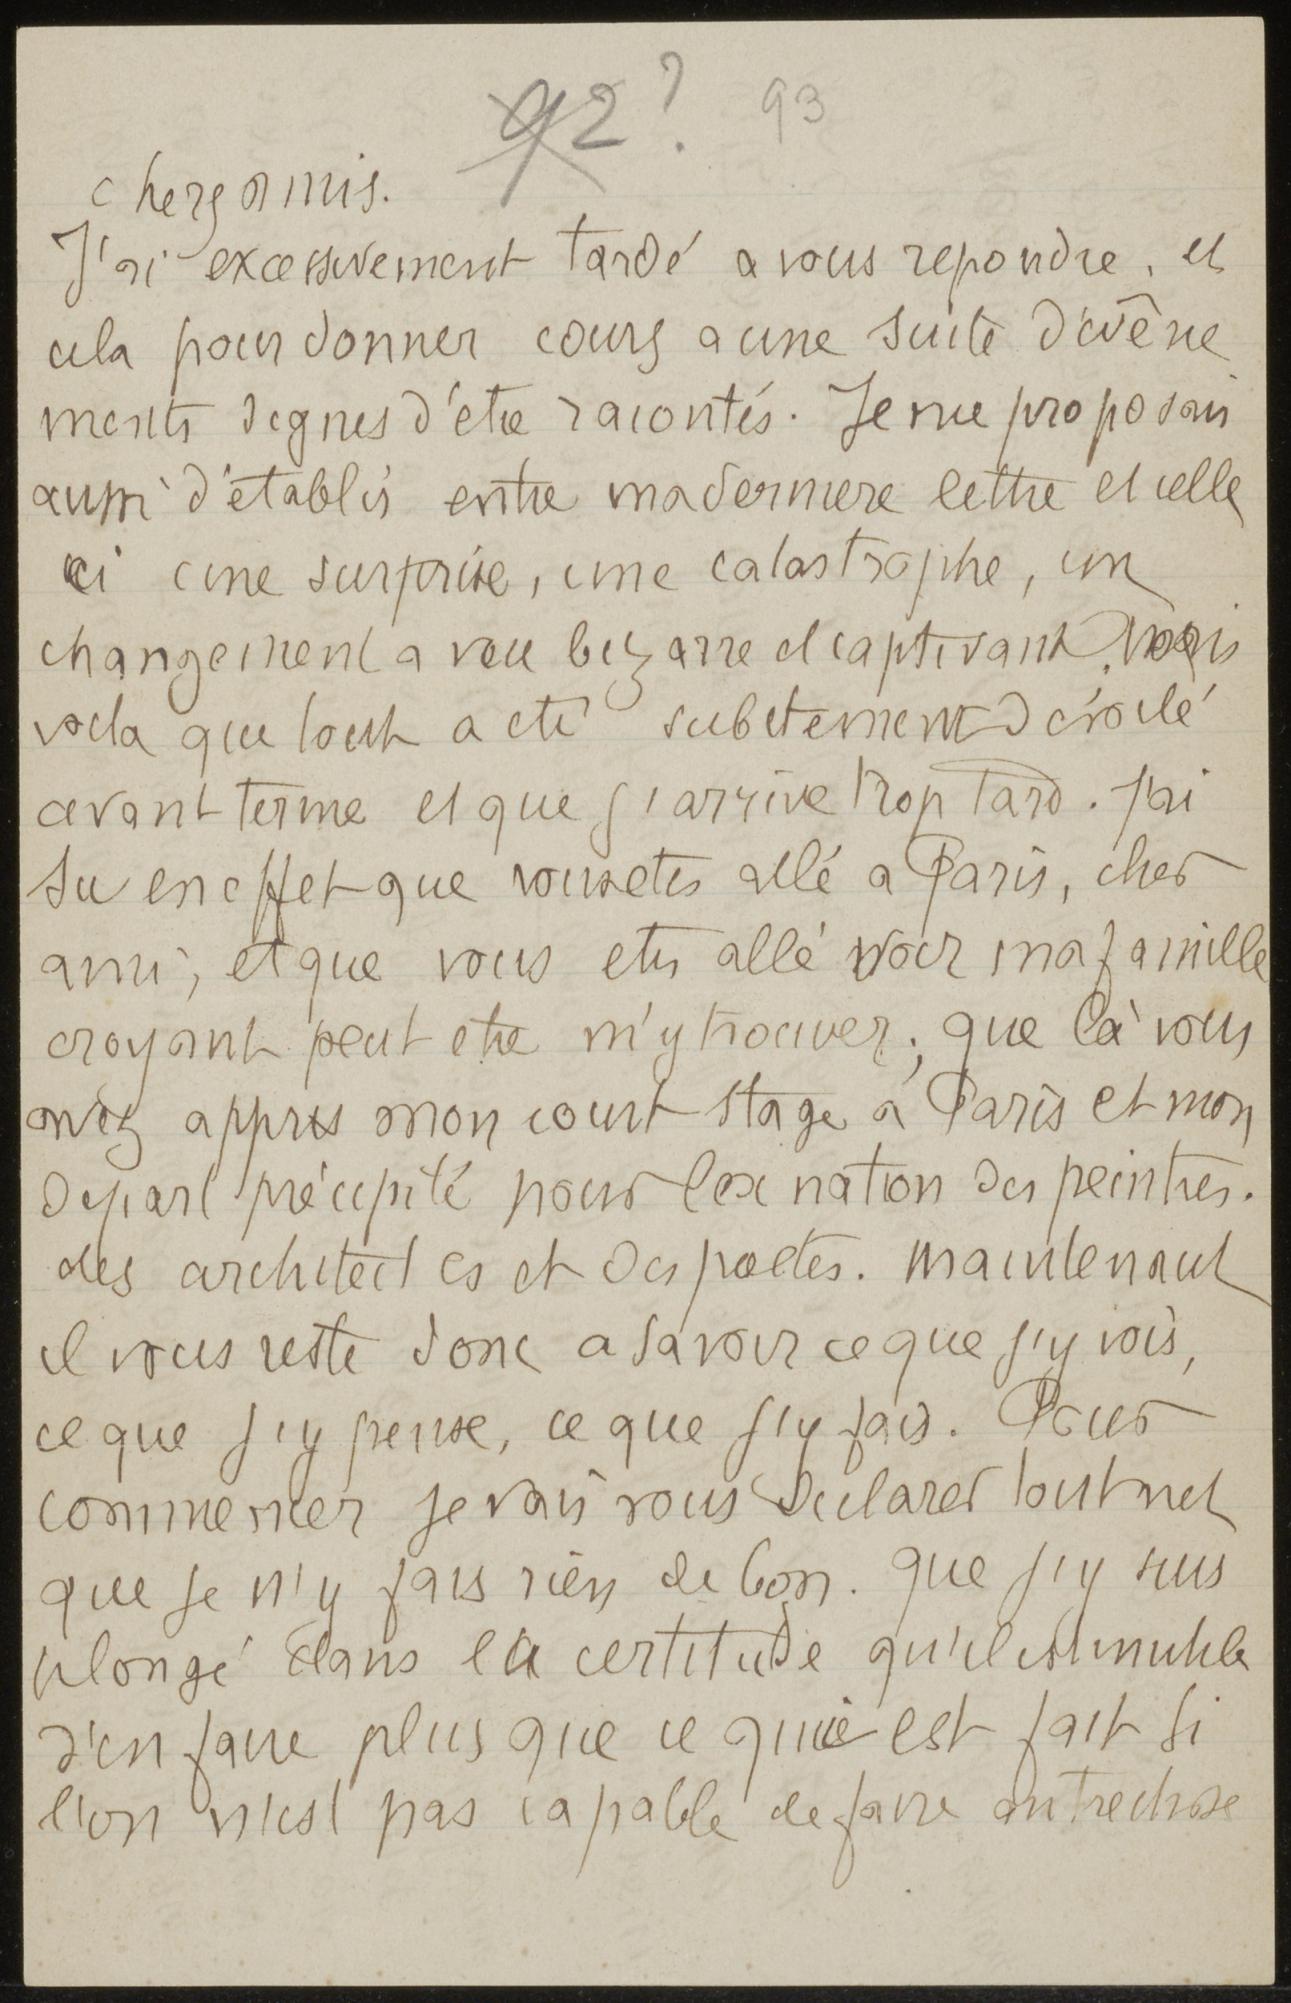 92? 93
chers amis.
J'ai excessivement tardé a vous repondre, et
cela pour donner cours a une suite d'évêne
ments dignes d'être racontés. Je me proposais
aussi d'établir entre ma derniere lettre et celle
ci une surprise, une catastrophe, un
changement a vue bizarre et captivant. Mais
voila que tout a été subitement dévoilé
avant terme et que j'arrive trop tard. J'ai
su en effet que vous etes allé a Paris, cher
ami, et que vous etes allé voir ma famille
croyant peut etre m'y trouver; que là vous
avez appris mon court stage à Paris et mon
depart précipité pour la nation des peintres.
des architectes et des poetes. Maintenant
il vous reste donc a savoir ce que j'y vois,
ce que j'y pense, ce que j'y fais. Pour
commencer je vais vous declarer tout net
que je n'y fais rien de bon. que j'y suis
plongé dans la certitude qu'il est inutile
d'en faire plus que ce qui est fait si
l'on n'est pas capable de faire autre chose